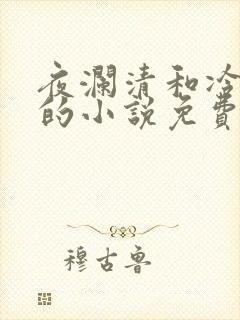 夜瀾清和冷
的小說免費
穆古魯